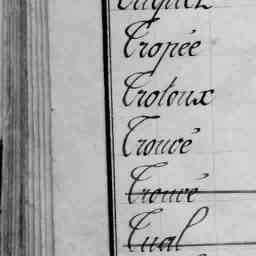 Tropée
Trotoux
Trouvé
Trouvé
Tual